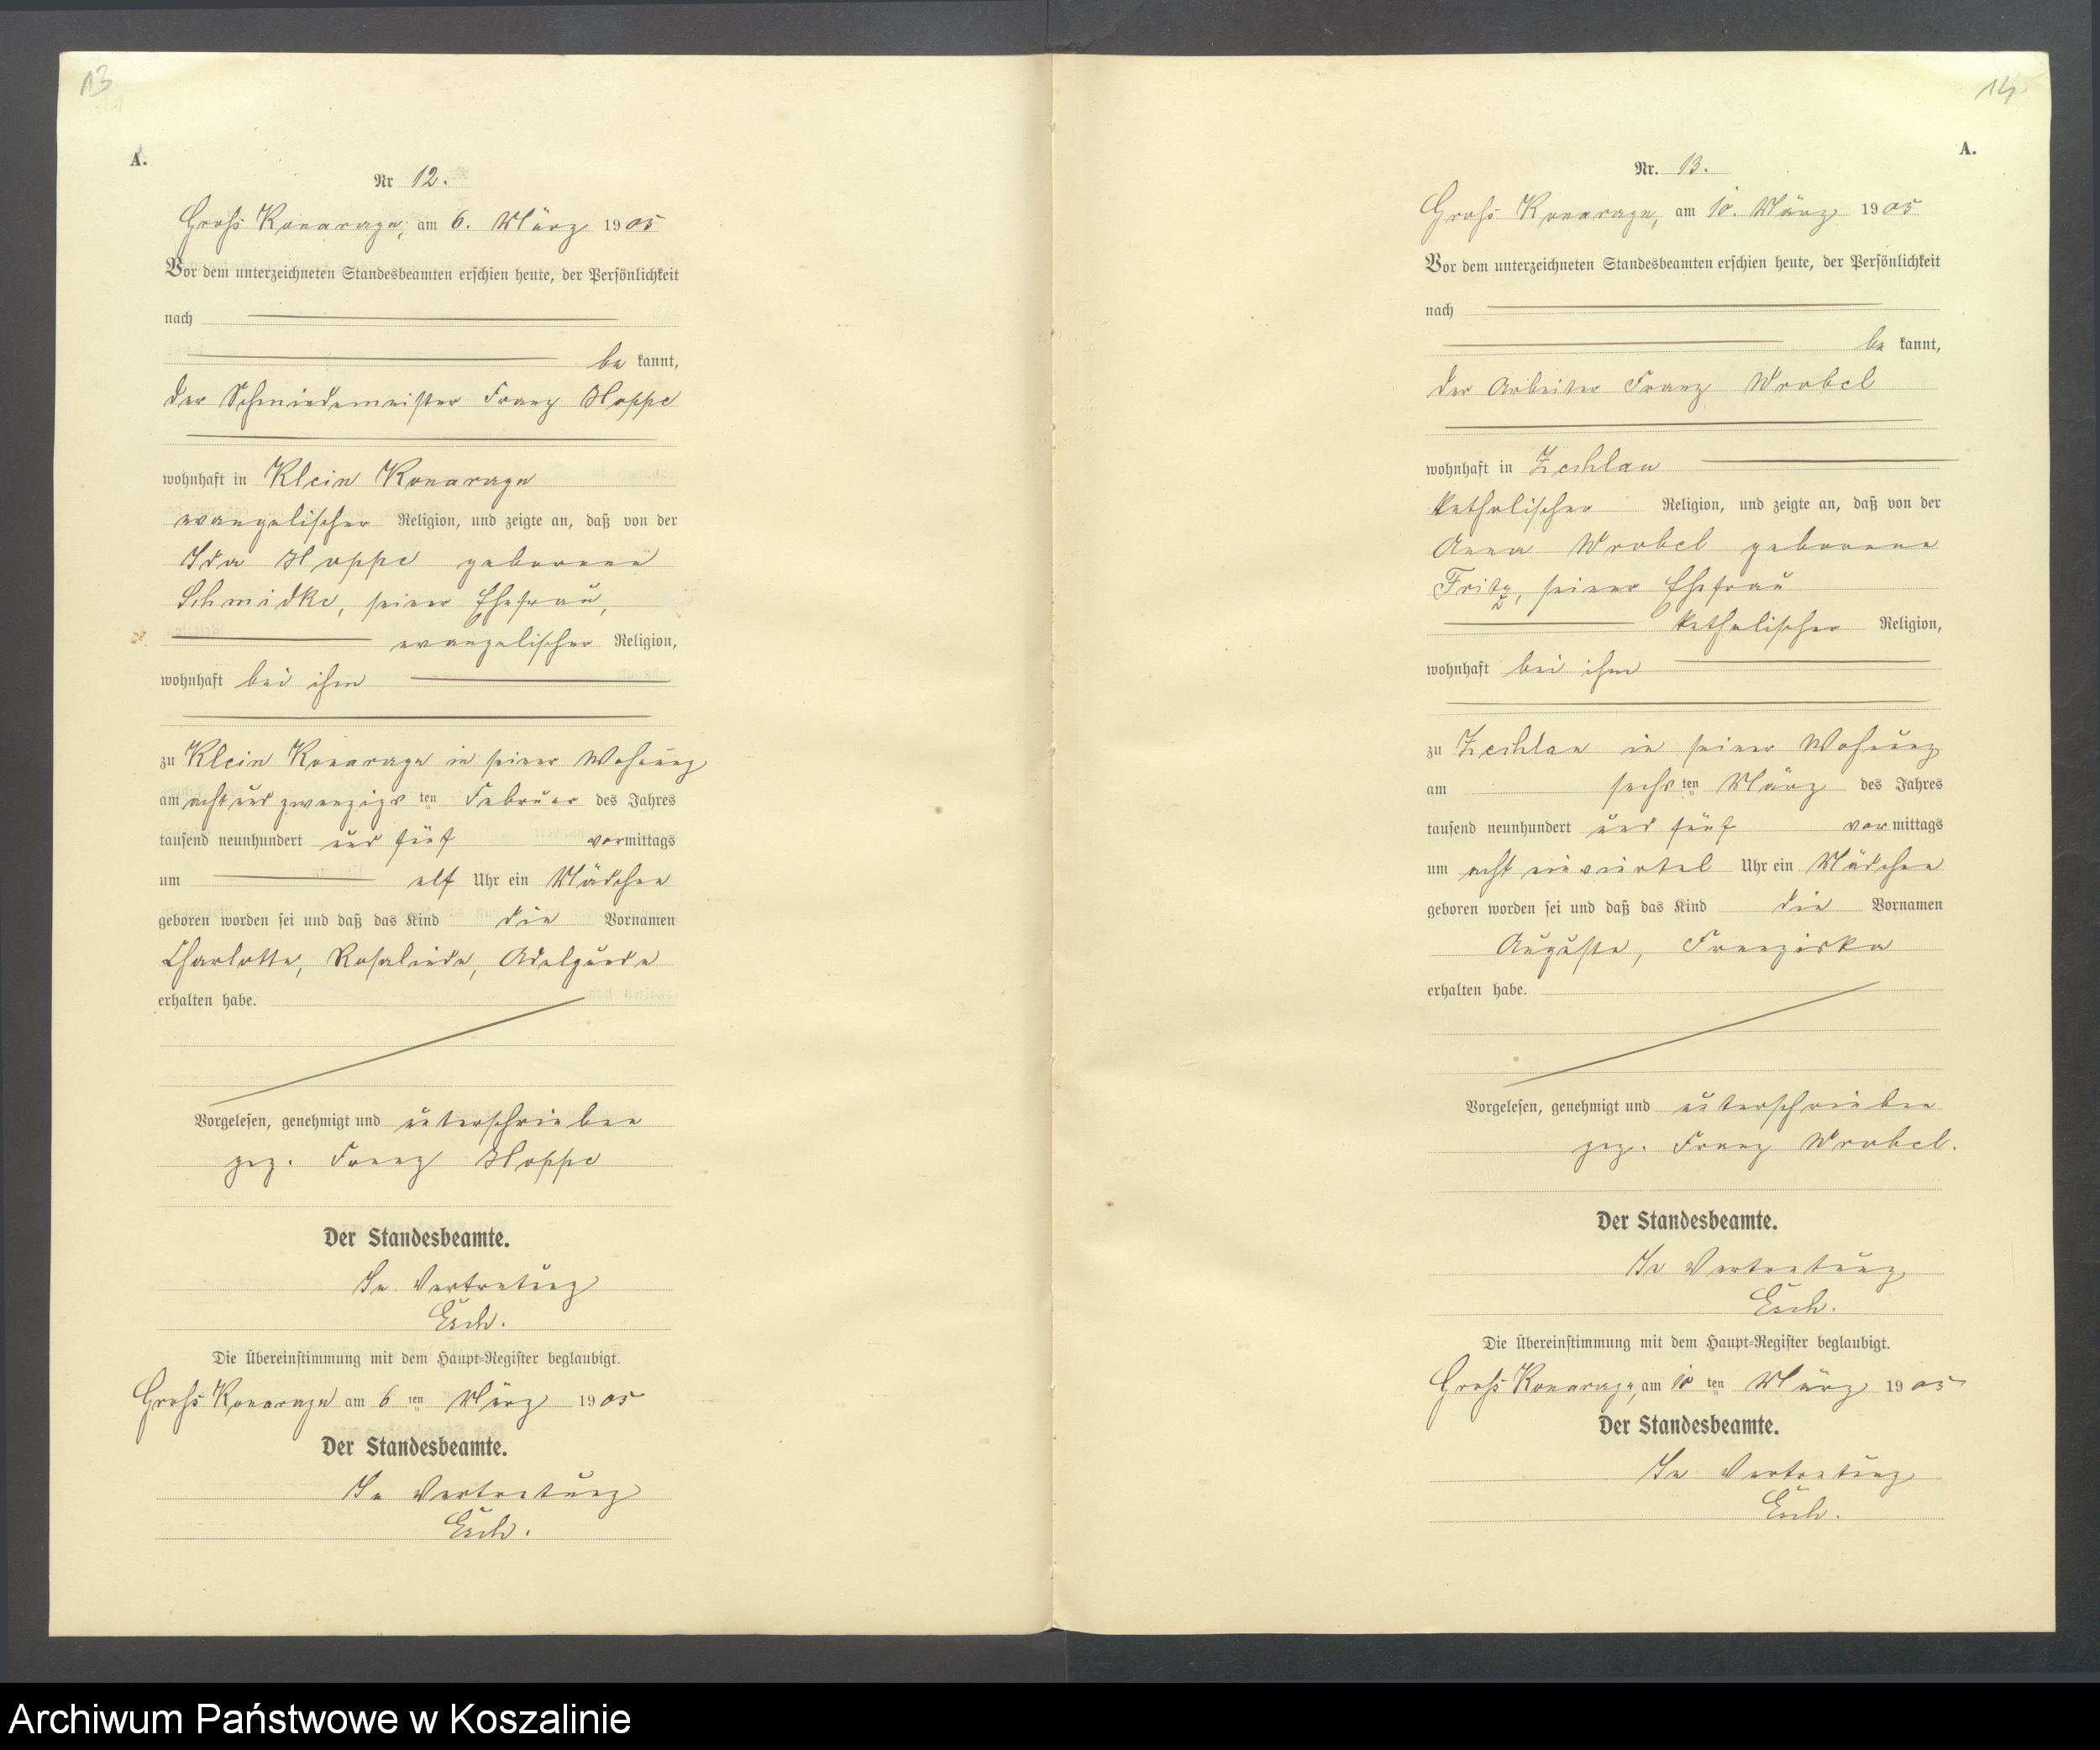 13
A.
Nr 12.
Groß Konarzyn, am 6. März 1905
Vor dem unterzeichneten Standesbeamten erschien heute, der Persönlichkeit
nach
be kannt,
der Schmiedemeister Franz Hoppe
wohnhaft in Klein Konarzyn
evangelischer Religion, und zeigte an, daß von der
Ida Hoppe geborene
Schmidke, seiner Ehefrau,
evangelischer Religion,
wohnhaft bei ihm
zu Klein Konarzyn in seiner Wohnung
am acht und zwanzigsten Februar des Jahres
tausend neunhundert und fünf vormittags
um elf Uhr ein Mädchen
geboren worden sei und daß das Kind die Vornamen
Charlotte, Rosalinde, Adelgunde
erhalten habe.
Vorgelesen, genehmigt und unterschrieben
gez. Franz Hoppe
Der Standesbeamte.
In Vertretung
Esch.
Die Übereinstimmung mit dem Haupt-Register beglaubigt.
Groß Konarzyn am 6 ten März 1905
Der Standesbeamte.
In Vertretung
Esch.
14
A.
Nr. 13.
Groß Konarzyn, am 10. März 1905
Vor dem unterzeichneten Standesbeamten erschien heute, der Persönlichkeit
nach
be kannt,
der Arbeiter Franz Wrobel
wohnhaft in Zechlau
katholischer Religion, und zeigte an, daß von der
Anna Wrobel geborene
Fritz, seiner Ehefrau
katholischer Religion,
wohnhaft bei ihm
zu Zechlau in seiner Wohnung
am sechsten März des Jahres
tausend neunhundert und fünf vormittags
um acht einviertel Uhr ein Mädchen
geboren worden sei und daß das Kind die Vornamen
Auguste, Franziska
erhalten habe.
Vorgelesen, genehmigt und unterschrieben
gez. Franz Wrobel.
Der Standesbeamte.
In Vertretung
Esch.
Die Übereinstimmung mit dem Haupt-Register beglaubigt.
Groß Konarzyn, am 10 ten März 1905
Der Standesbeamte.
In Vertretung
Esch.
Archiwum Państwowe w Koszalinie